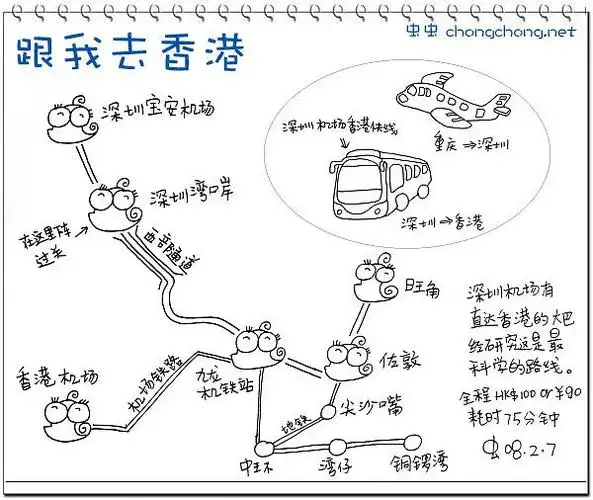 跟我去香港
虫虫 chongchong.net
深圳宝安机场
深圳机场香港快线
重庆→深圳
深圳湾口岸
深圳→香港
在这里
过关
西部通道
旺角
深圳机场有
直达香港的大巴
经研究这是最
科学的路线。
全程HK$100 or ¥90
耗时75分钟
虫08.2.7
佐敦
香港机场
机场铁路
九龙
机铁站
尖沙嘴
地铁
中环
湾仔
铜锣湾